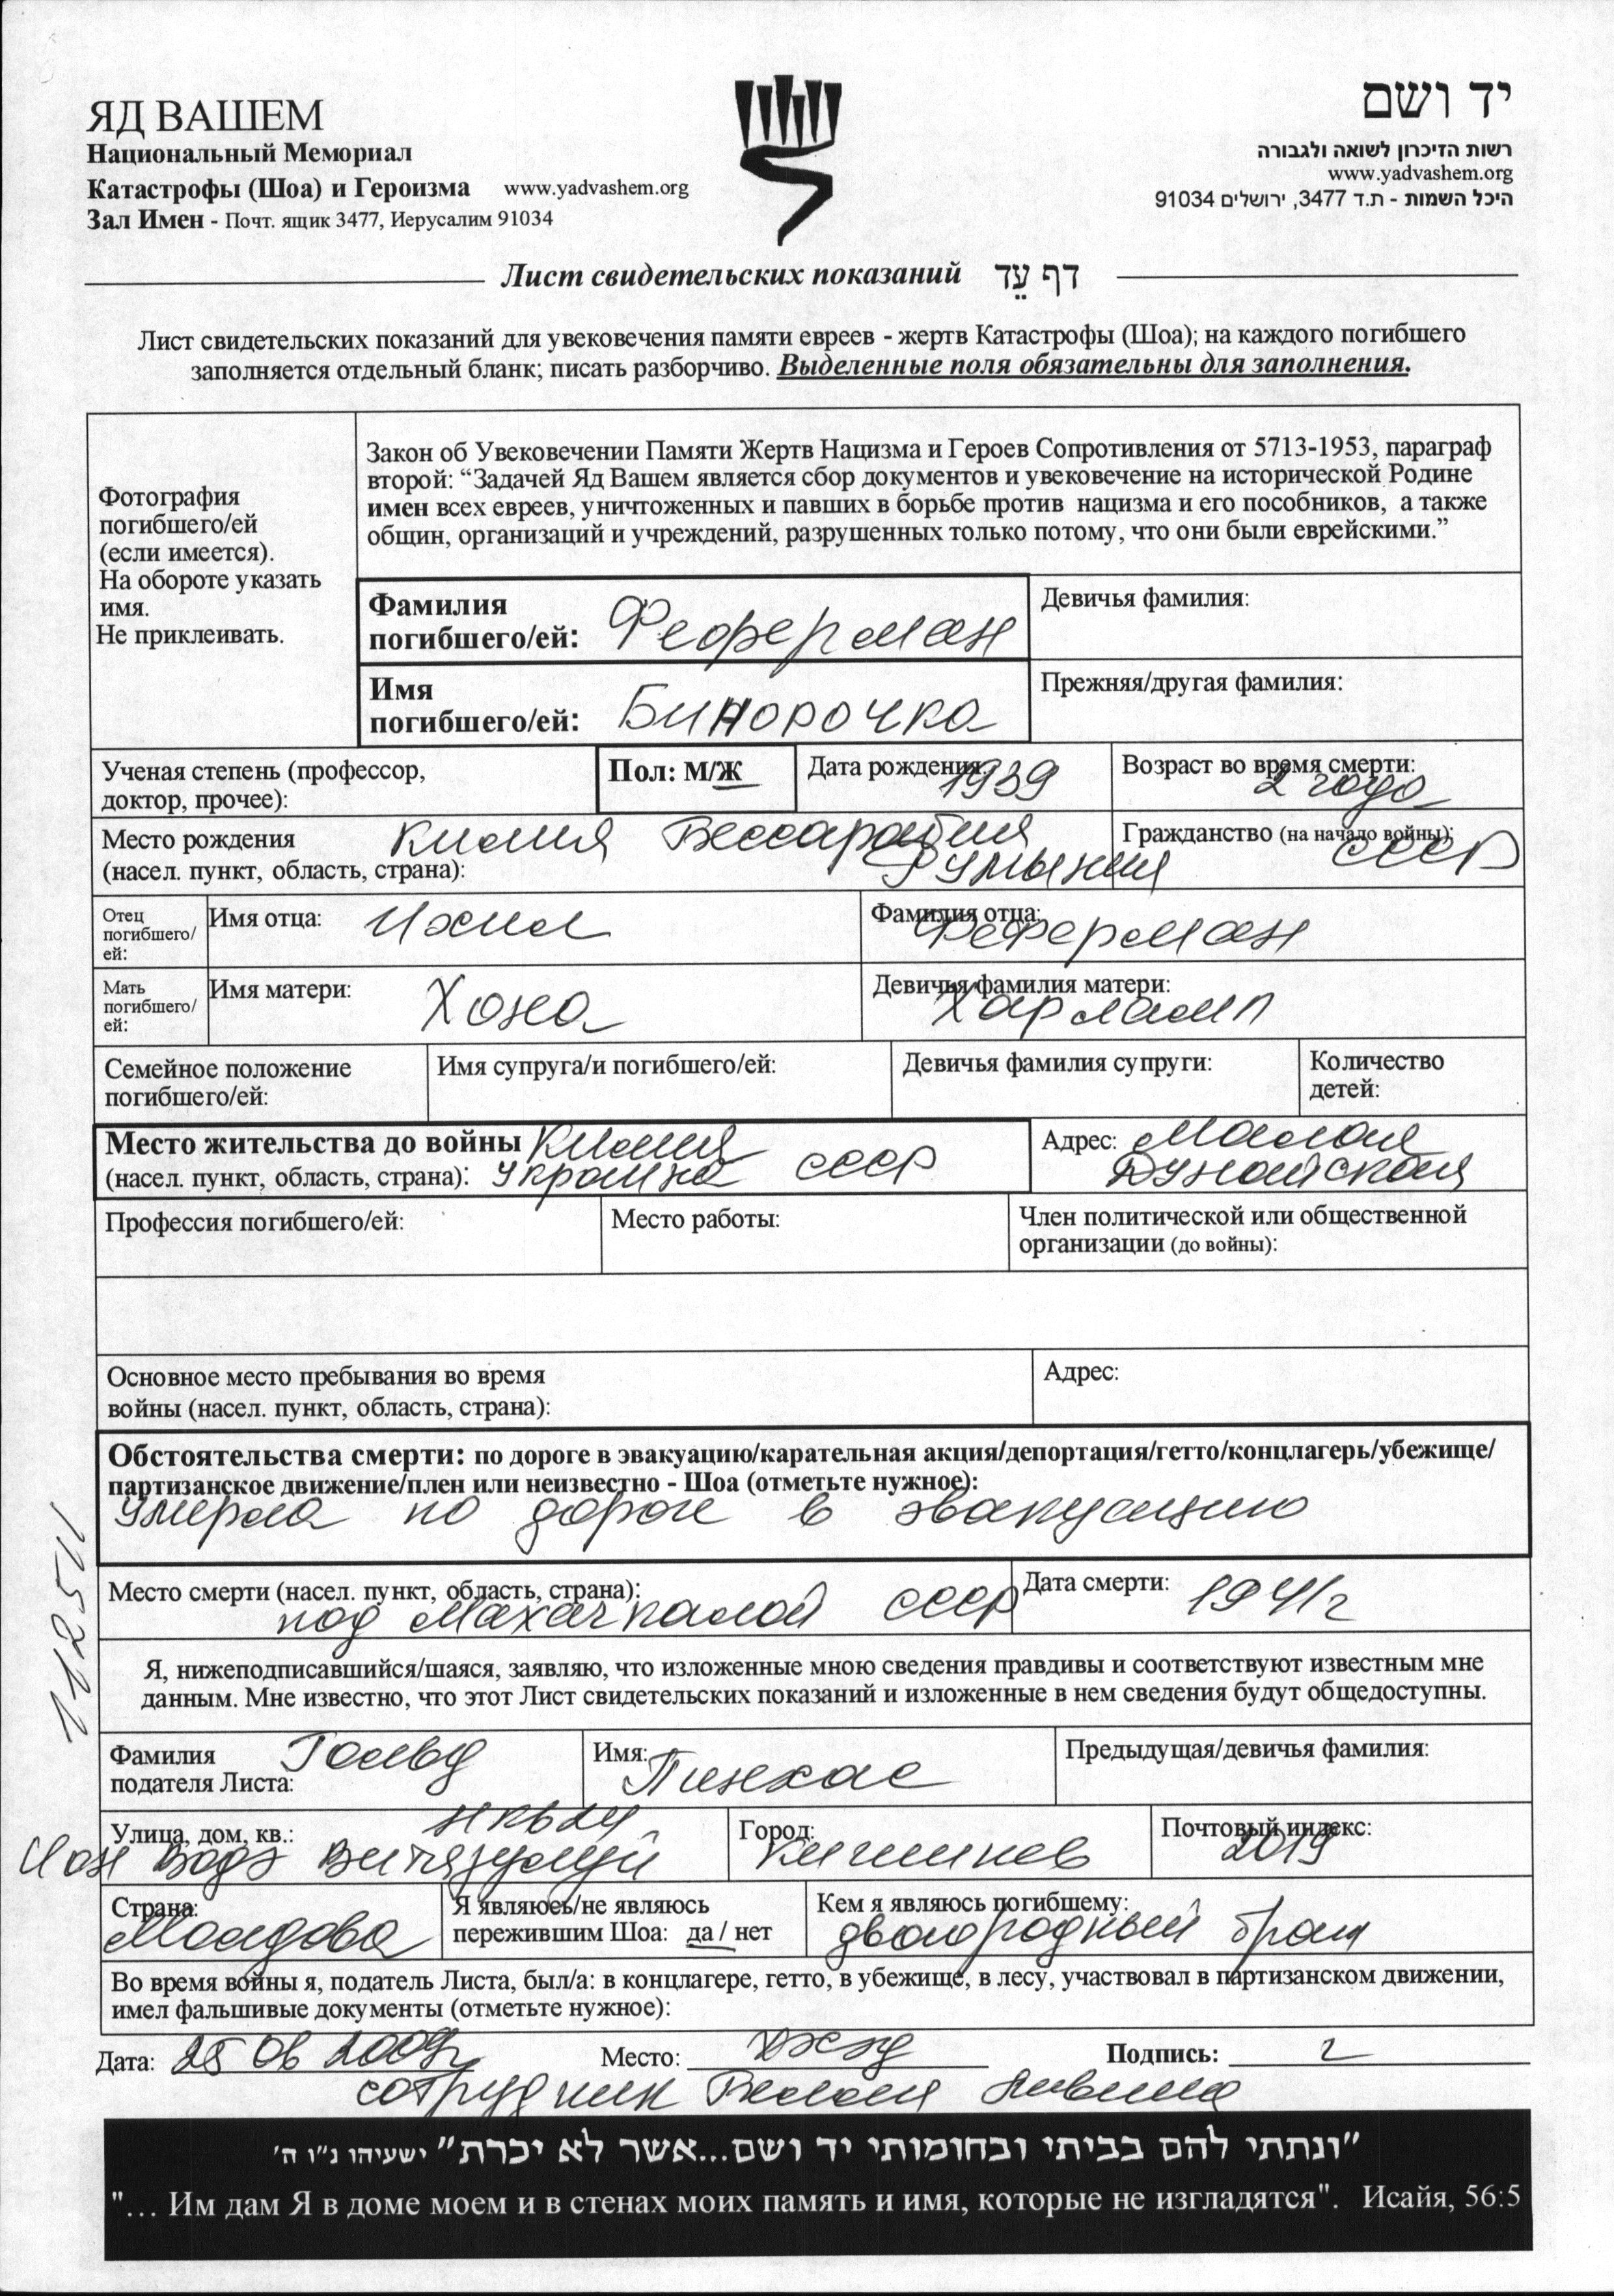 ЯД ВАШЕМ
Национальный Мемориал
Катастрофы (Шоа) и Героизма www.yadvashem.org
Зал Имен - Почт. ящик 3477, Иерусалим 91034
יד ושם
רשות הזיכרון לשואה ולגבורה
www.yadvashem.org
היכל השמות - ת.ד 3477, ירושלים 91034
Лист свидетельских показаний דף עֵד
Лист свидетельских показаний для увековечения памяти евреев - жертв Катастрофы (Шоа); на каждого погибшего
заполняется отдельный бланк; писать разборчиво. Выделенные поля обязательны для заполнения.
Фотография
погибшего/ей
(если имеется).
На обороте указать
имя.
Не приклеивать.
Закон об Увековечении Памяти Жертв Нацизма и Героев Сопротивления от 5713-1953, параграф
второй: “Задачей Яд Вашем является сбор документов и увековечение на исторической Родине
имен всех евреев, уничтоженных и павших в борьбе против нацизма и его пособников, а также
общин, организаций и учреждений, разрушенных только потому, что они были еврейскими.”
Фамилия
погибшего/ей: Феферман
Девичья фамилия:
Имя
погибшего/ей: Бинорочка
Прежняя/другая фамилия:
Ученая степень (профессор,
доктор, прочее):
Пол: М/Ж
Дата рождения: 1939
Возраст во время смерти:
2 года
Место рождения Килия Бессарабия
(насел. пункт, область, страна): Румыния
Гражданство (на начало войны):
СССР
Отец
погибшего/
ей:
Имя отца: Ихил
Фамилия отца:
Феферман
Мать
погибшего/
ей:
Имя матери: Хона
Девичья фамилия матери:
Харламп
Семейное положение
погибшего/ей:
Имя супруга/и погибшего/ей:
Девичья фамилия супруги:
Количество
детей:
Место жительства до войны Килия
(насел. пункт, область, страна): Украина СССР
Адрес: Малая
Дунайская
Профессия погибшего/ей:
Место работы:
Член политической или общественной
организации (до войны):
Основное место пребывания во время
войны (насел. пункт, область, страна):
Адрес:
Обстоятельства смерти: по дороге в эвакуацию/карательная акция/депортация/гетто/концлагерь/убежище/
партизанское движение/плен или неизвестно - Шоа (отметьте нужное):
Умерла по дороге в эвакуацию
Место смерти (насел. пункт, область, страна):
под Махачкалой СССР
Дата смерти: 1941г
Я, нижеподписавшийся/шаяся, заявляю, что изложенные мною сведения правдивы и соответствуют известным мне
данным. Мне известно, что этот Лист свидетельских показаний и изложенные в нем сведения будут общедоступны.
Фамилия Гольд
подателя Листа:
Имя: Пинхас
Предыдущая/девичья фамилия:
Улица, дом, кв.:
Город:
Кишинев
Почтовый индекс:
2019
Страна:
Молдова
Я являюсь/не являюсь
пережившим Шоа: да / нет
Кем я являюсь погибшему:
двоюродный брат
Во время войны я, податель Листа, был/а: в концлагере, гетто, в убежище, в лесу, участвовал в партизанском движении,
имел фальшивые документы (отметьте нужное):
Дата: 25 06 2009г Место: Подпись:
сотрудник
"ונתתי להם בביתי ובחומותי יד ושם...אשר לא יכרת" ישעיהו נ"ו ה'
"… Им дам Я в доме моем и в стенах моих память и имя, которые не изгладятся". Исайя, 56:5